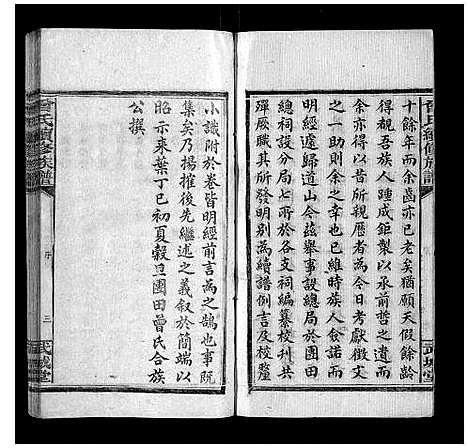 十餘年而余齒亦已老矣猶願天假余齡
得覩吾族人踵成鉅製以承前哲之遺而
余亦得以昔所親歷者為今日考獻徵文
之一助則余之幸也已維時族人僉諾而
明經遽歸道山今茲舉事設總局於團田
總祠設分局七所於各支祠編纂校刊共
殫厥職其所發明為續譜例言及校釐
小識附於卷皆明經前言為之鵠也事既
集矣乃揚搉後先繼述之義敘於簡端以
昭示來葉丁巳初夏穀旦團田曾氏合族
公撰
曾氏續修族譜
序
三
武城堂
曾氏續修族譜
武城堂